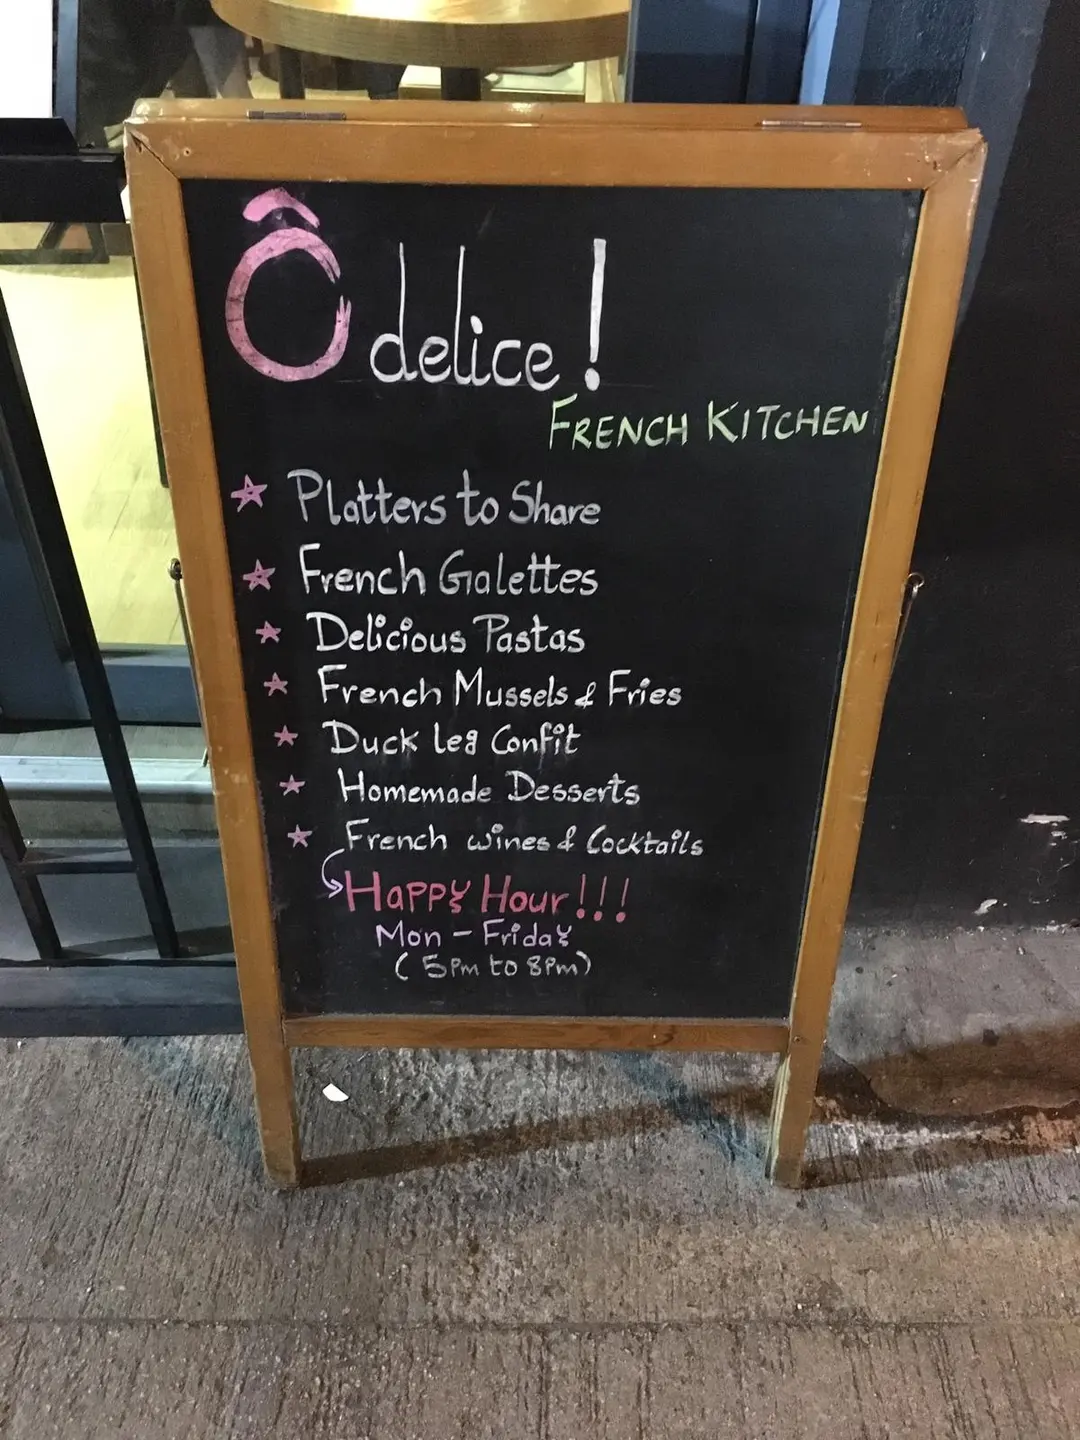 Ô delice !
FRENCH KITCHEN
Platters to Share
French Galettes
Delicious Pastas
French Mussels & Fries
Duck leg Confit
Homemade Desserts
French wines & Cocktails
Happy Hour!!!
Mon - Friday
(5pm to 8pm)